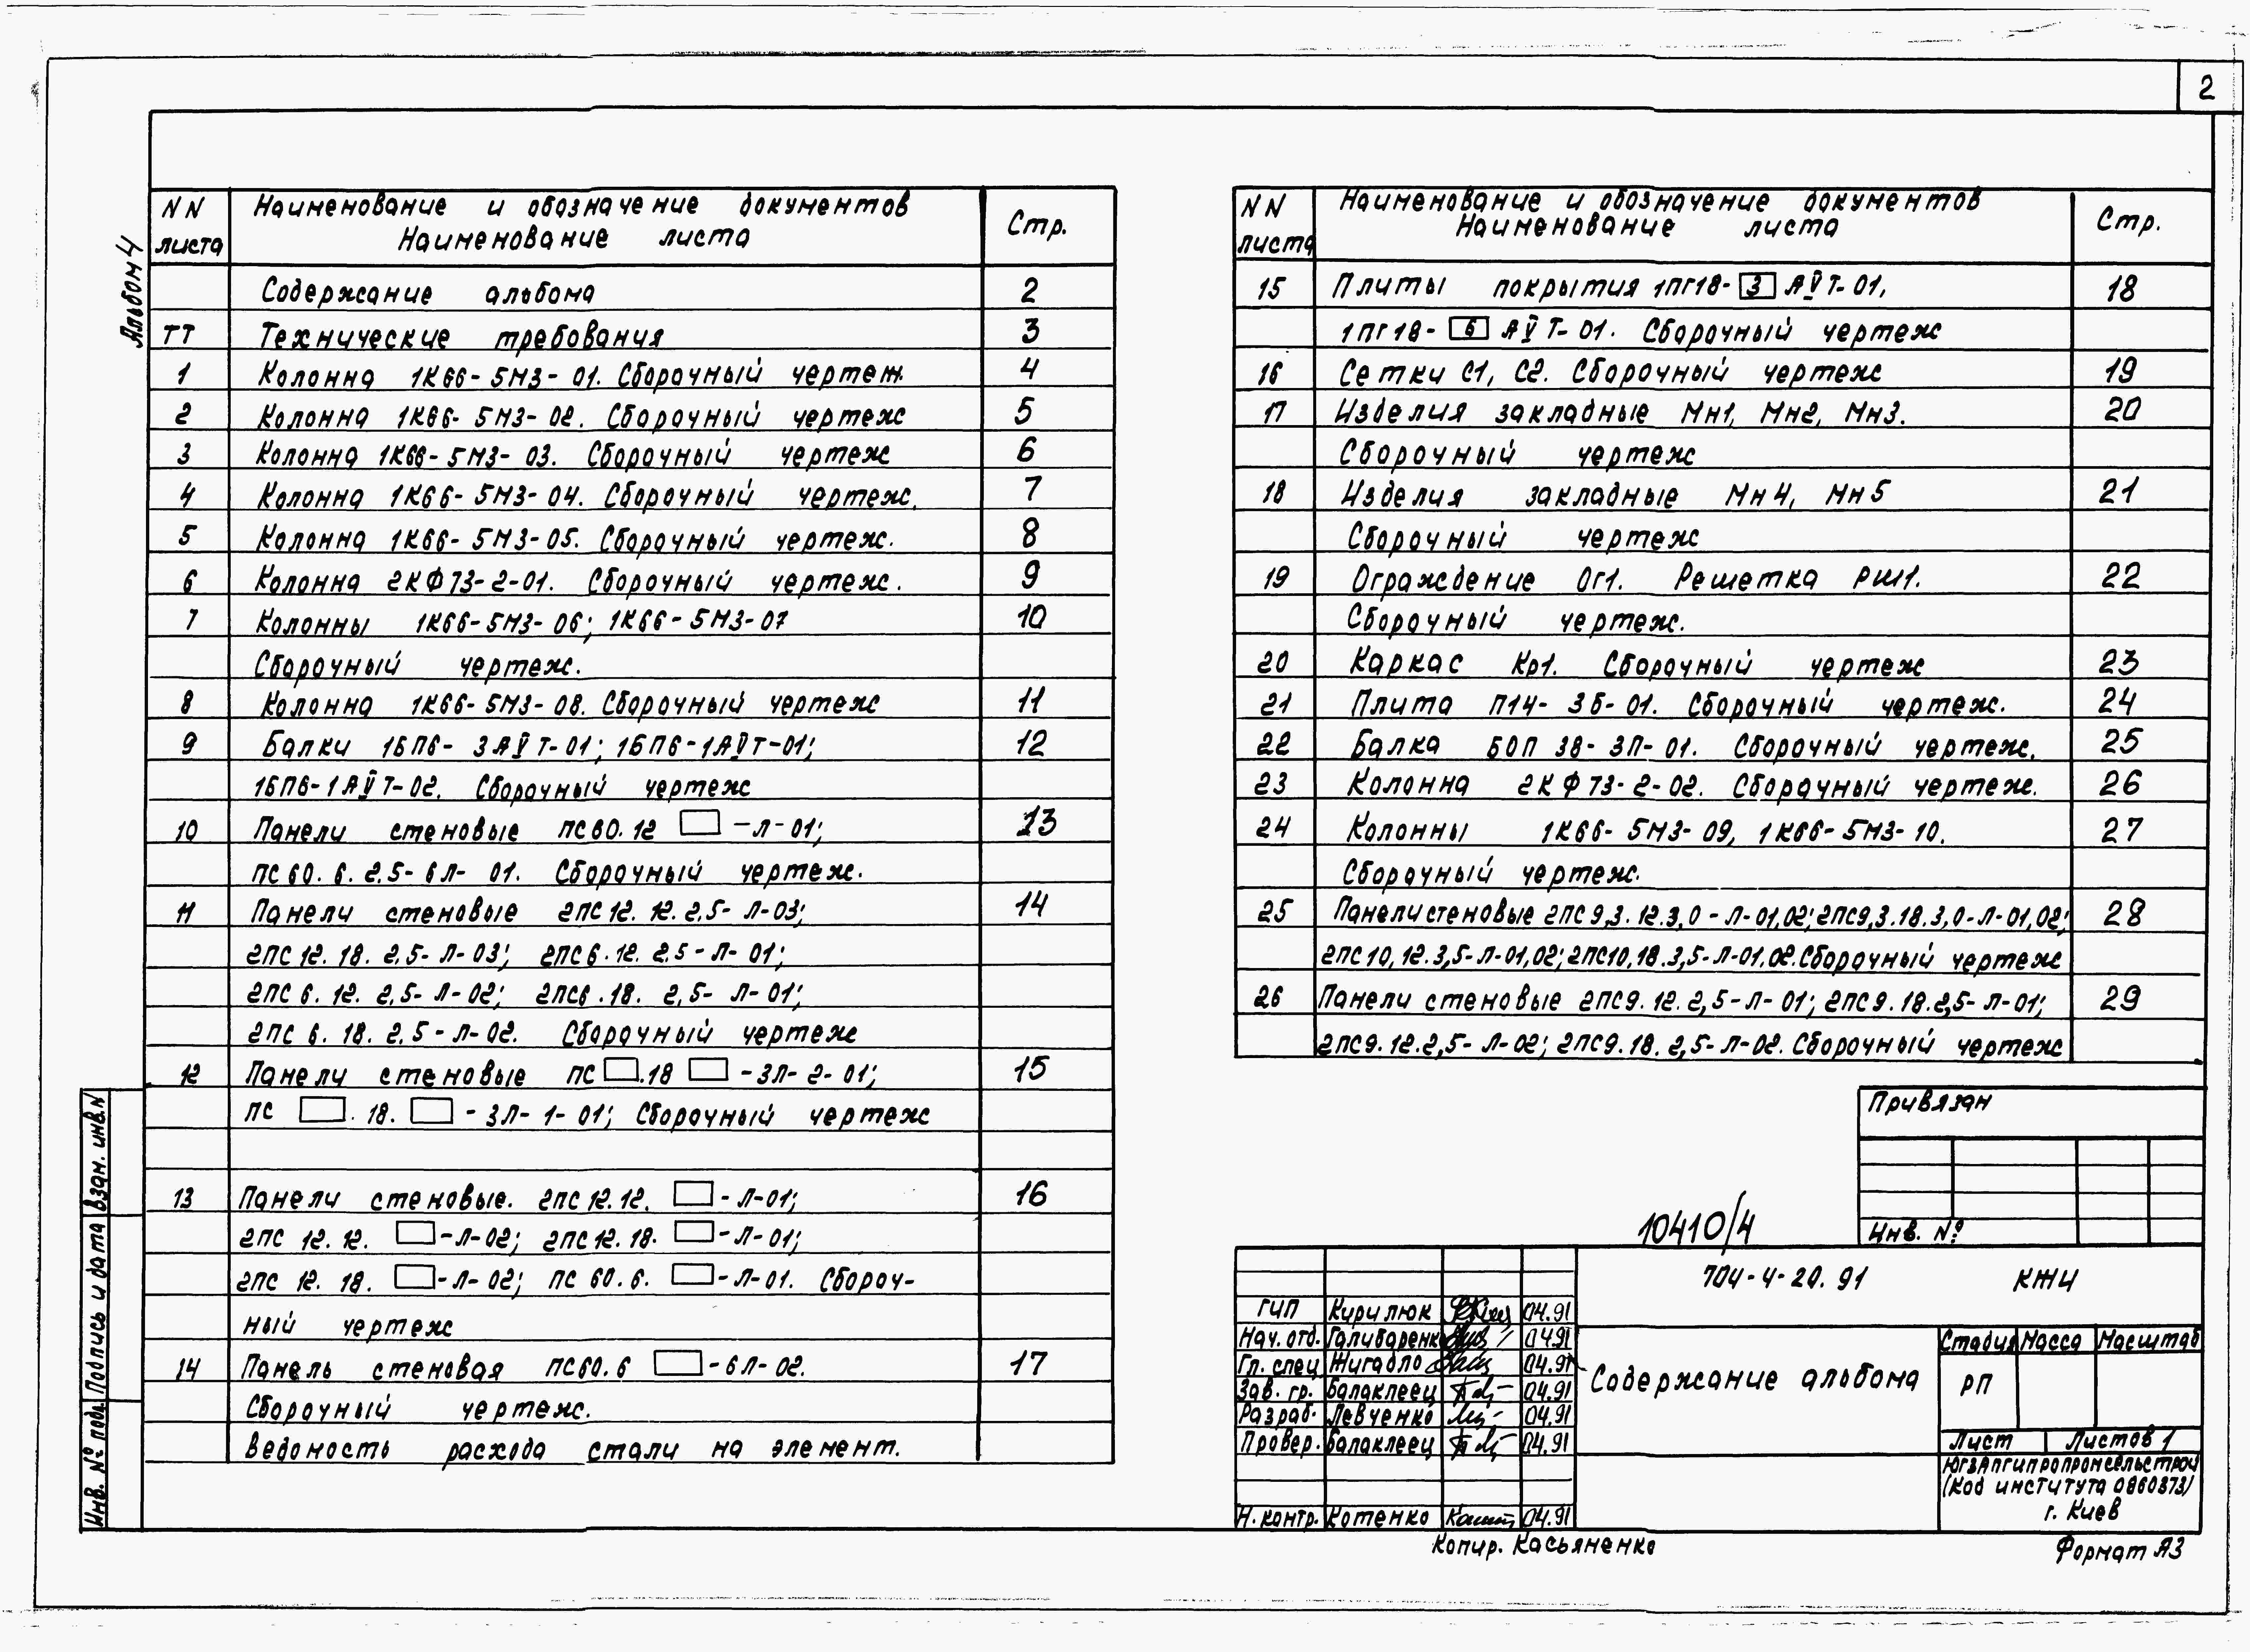 2
Альбом 4
NN листа
Наименование и обозначение документов
Наименование листа
Стр.
Содержание альбома 2
ТТ Технические требования 3
1 Колонна 1К66-5М3-01. Сборочный чертеж 4
2 Колонна 1К66-5М3-02. Сборочный чертеж 5
3 Колонна 1К66-5М3-03. Сборочный чертеж 6
4 Колонна 1К66-5М3-04. Сборочный чертеж. 7
5 Колонна 1К66-5М3-05. Сборочный чертеж. 8
6 Колонна 2КФ73-2-01. Сборочный чертеж. 9
7 Колонны 1К66-5М3-06; 1К66-5М3-07 10
Сборочный чертеж.
8 Колонна 1К66-5М3-08. Сборочный чертеж 11
9 Балки 1БП6-3АⅤТ-01; 1БП6-1АⅤТ-01; 12
1БП6-1АⅤТ-02. Сборочный чертеж
10 Панели стеновые ПС60.12 □-Л-01; 13
ПС60.6.2,5-6Л-01. Сборочный чертеж.
11 Панели стеновые 2ПС12.12.2,5-Л-03; 14
2ПС12.18.2,5-Л-03; 2ПС6.12.2,5-Л-01;
2ПС6.12.2,5-Л-02; 2ПС6.18.2,5-Л-01;
2ПС6.18.2,5-Л-02. Сборочный чертеж
12 Панели стеновые ПС□.18□-3Л-2-01; 15
ПС□.18.□-3Л-1-01; Сборочный чертеж
13 Панели стеновые. 2ПС12.12.□-Л-01; 16
2ПС12.12.□-Л-02; 2ПС12.18.□-Л-01;
2ПС12.18.□-Л-02; ПС60.6.□-Л-01. Сбороч-
ный чертеж
14 Панель стеновая ПС60.6□-6Л-02. 17
Сборочный чертеж.
Ведомость расхода стали на элемент.
NN листа
Наименование и обозначение документов
Наименование листа
Стр.
15 Плиты покрытия 1ПГ18-3АⅤТ-01, 18
1ПГ18-6АⅤТ-01. Сборочный чертеж
16 Сетки С1, С2. Сборочный чертеж 19
17 Изделия закладные Мн1, Мн2, Мн3. 20
Сборочный чертеж
18 Изделия закладные Мн4, Мн5 21
Сборочный чертеж
19 Ограждение Ог1. Решетка РШ1. 22
Сборочный чертеж.
20 Каркас Кр1. Сборочный чертеж 23
21 Плита П14-3Б-01. Сборочный чертеж. 24
22 Балка БОП 38-3П-01. Сборочный чертеж. 25
23 Колонна 2КФ73-2-02. Сборочный чертеж. 26
24 Колонны 1К66-5М3-09, 1К66-5М3-10. 27
Сборочный чертеж.
25 Панели стеновые 2ПС9,3.12.3,0-Л-01,02; 2ПС9,3.18.3,0-Л-01,02; 28
2ПС10,12.3,5-Л-01,02; 2ПС10,18.3,5-Л-01,02. Сборочный чертеж
26 Панели стеновые 2ПС9.12.2,5-Л-01; 2ПС9.18.2,5-Л-01; 29
2ПС9.12.2,5-Л-02; 2ПС9.18.2,5-Л-02. Сборочный чертеж
Привязан
Инв. №
10410/4
704-4-20.91 КЖИ
ГИП Кирилюк 04.91
Нач. отд. Галибаренко 04.91
Гл. спец Жигадло 04.91
Зав. гр. Балаклеец 04.91
Разраб. Левченко 04.91
Провер. Балаклеец 04.91
Н. контр. Котенко 04.91
Содержание альбома
Стадия Масса Масштаб
РП
Лист Листов 1
Югзапгипропромсельстрой
(Код института 0860373)
г. Киев
Копир. Касьяненко
Формат А3
Инв. № подл. Подпись и дата Взам. инв. N